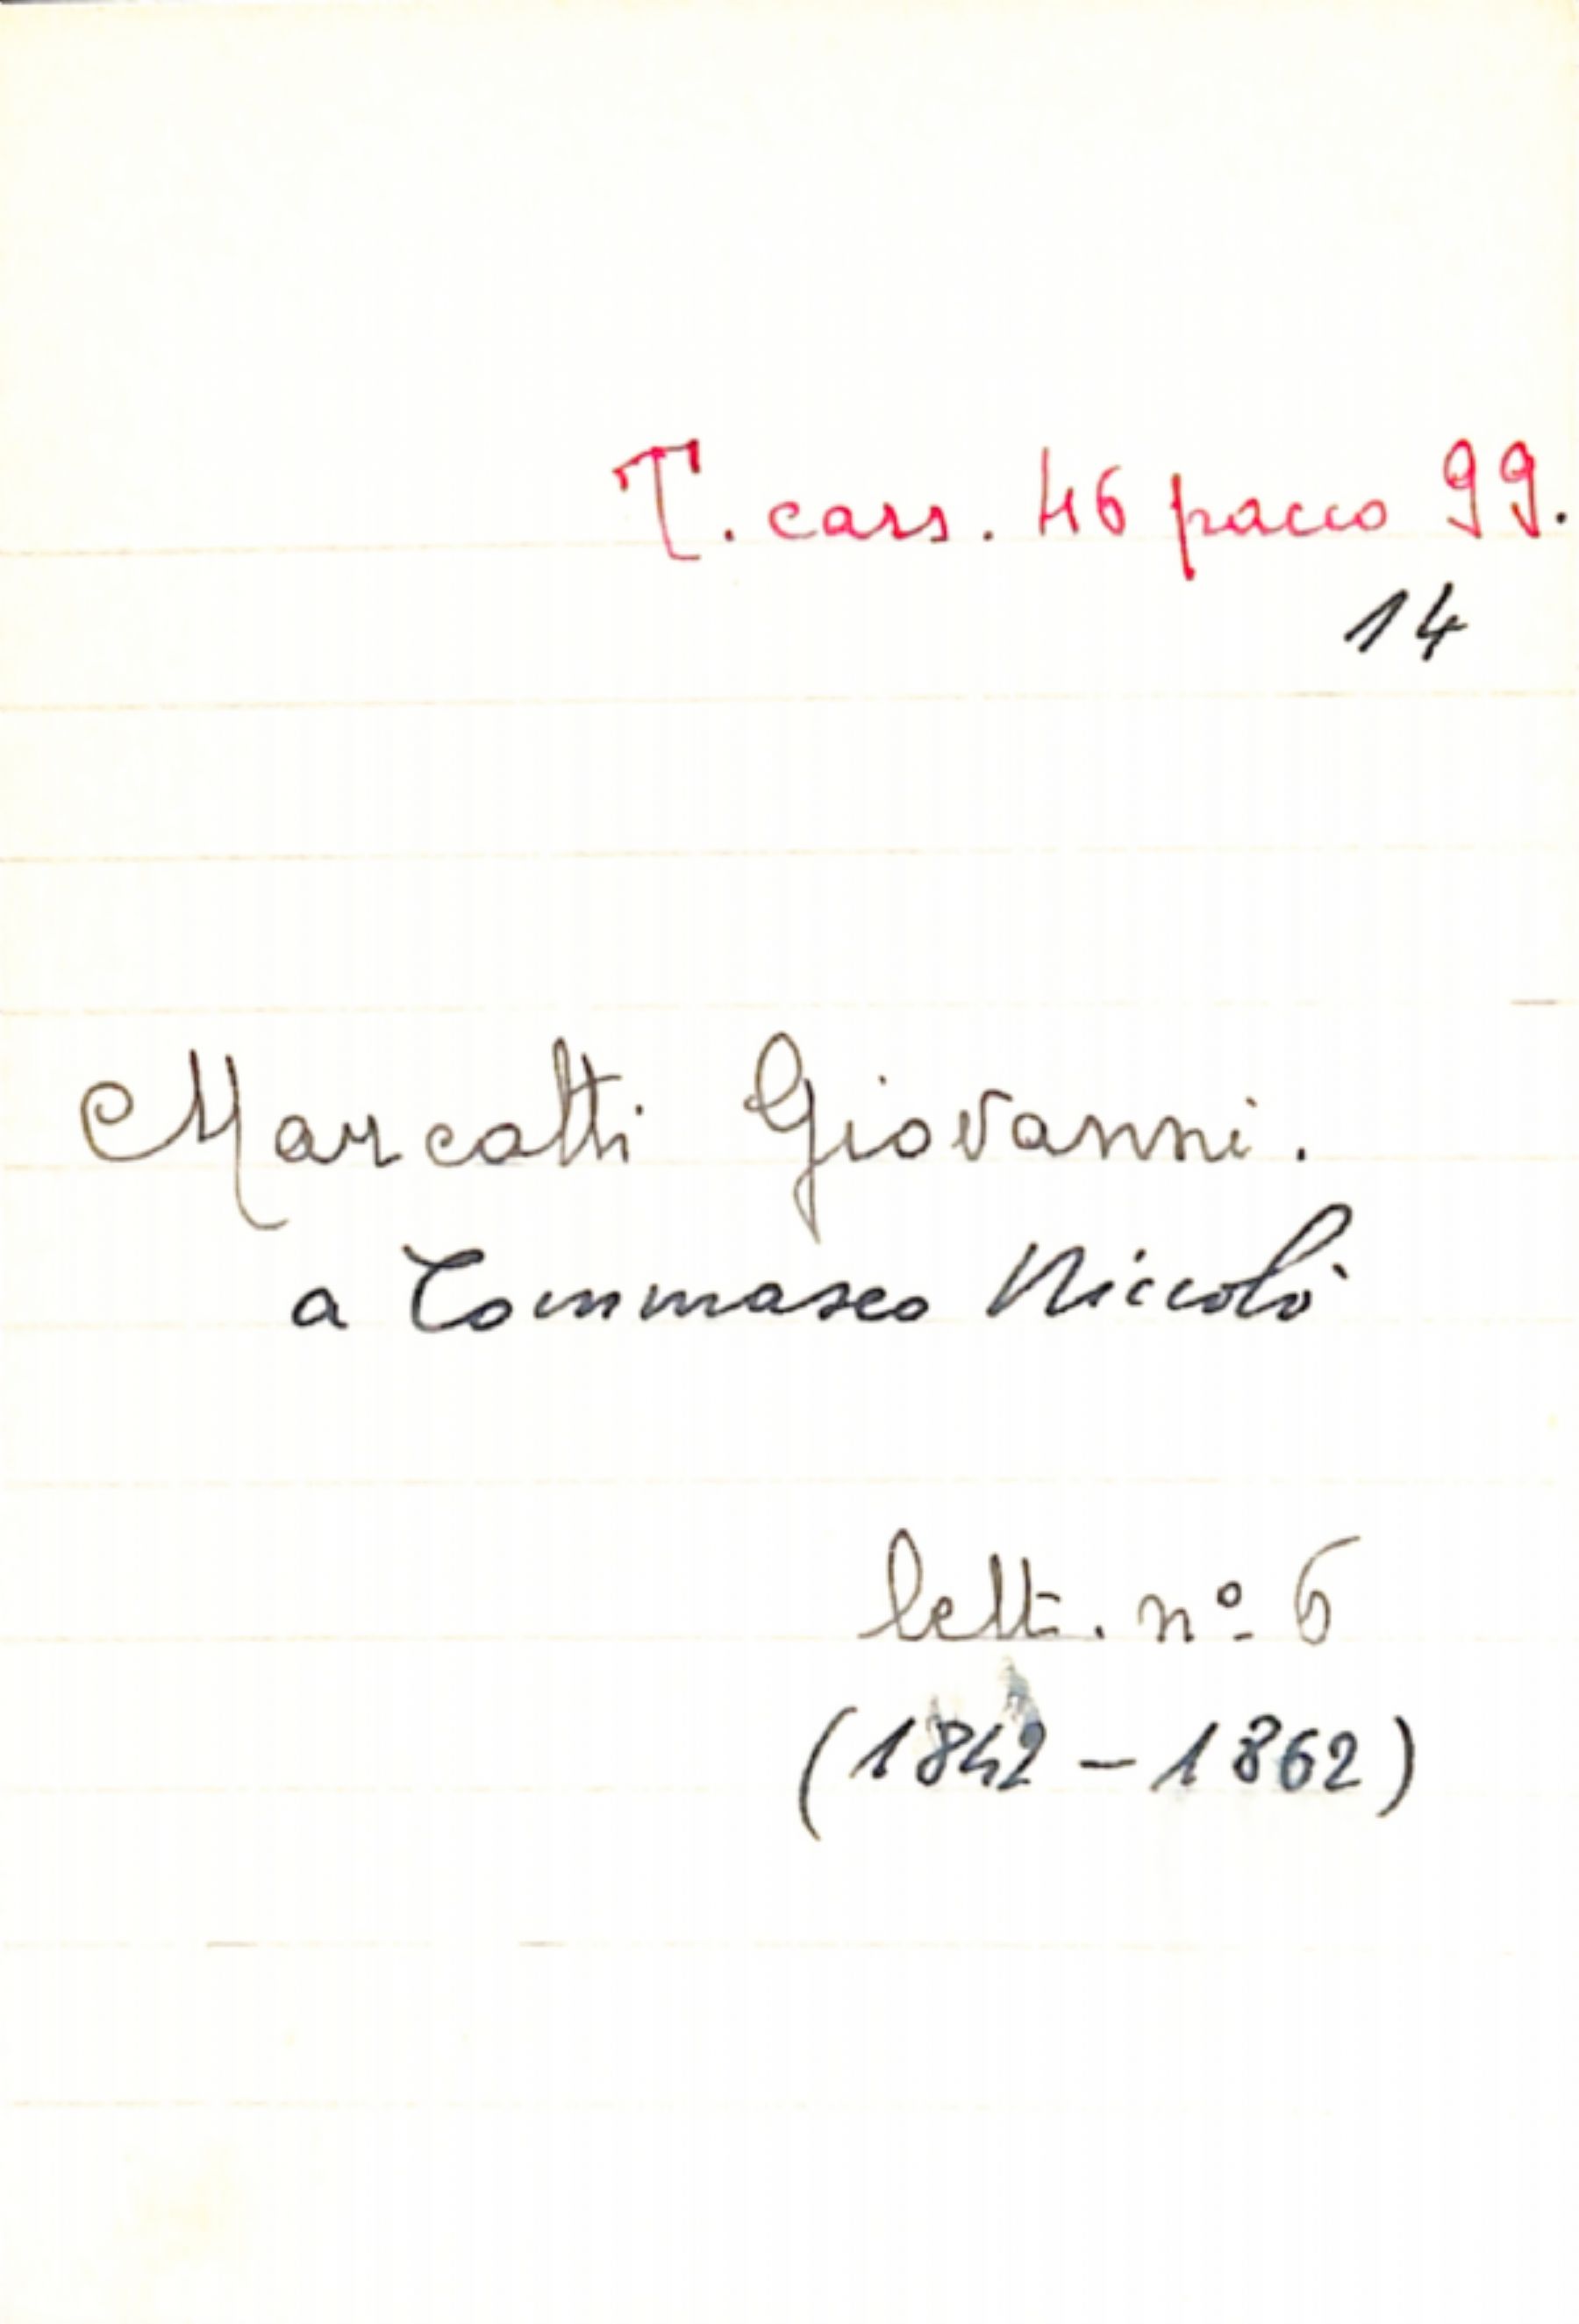 T. cass. 46 pacco 99.
14
Marcotti Giovanni.
a Tommaseo Niccolò
lett. nº 6
(1842 - 1862)